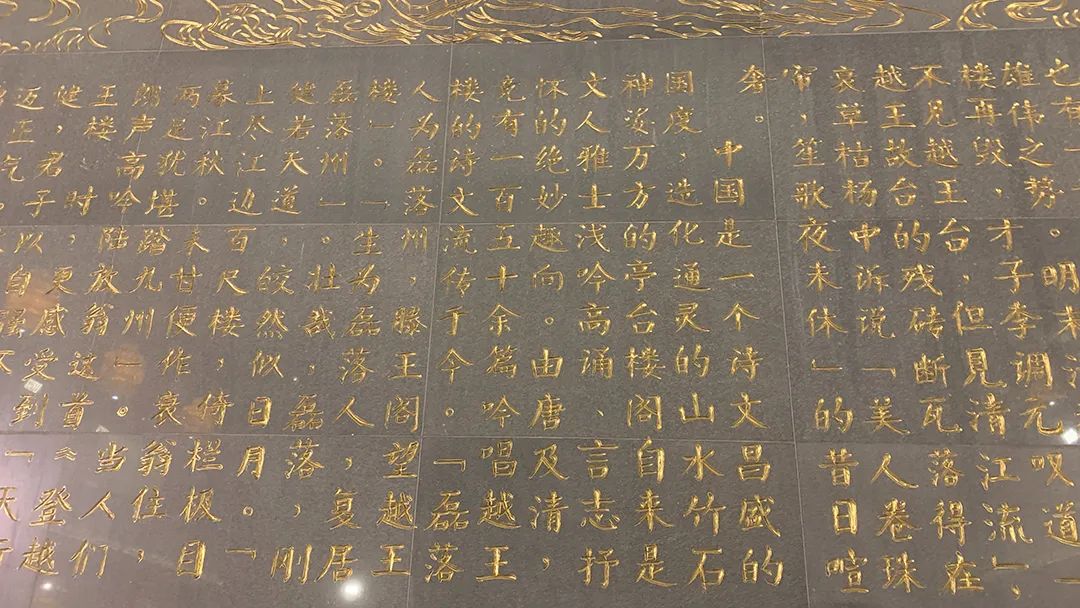 雄伟之势。明末清
楼再毁，才子李调元叹道
不见越王台，但見清江流」，
越王故台的残砖断瓦落得在
哀草枯杨中诉说「美人卷珠
帘，笙歌夜未休」的昔日喧
奢。中国是一个诗文昌盛的
国度，造化通灵的山水竹石
神姿万方的亭台楼阁自来是
文人雅士浅吟高诵、言志抒
怀的绝妙趣向。由唐及清，
竞有一百五十余篇吟唱越王
楼的诗文流传于今。「磊落
人为磊落州，滕王阁望越王
楼」。「一生为磊落人，复居
磊落州」。壮哉，磊落，刚
健若天道，皎然似日月。「
上尽江边百尺楼，倚栏极目
暮江秋。未甘便作衰翁住，
两足犹堪踏九州」。当人们
朗声高吟陆放翁这首《登越
王楼》时，更感受到「天行
健，君子以自强不
迈正气。